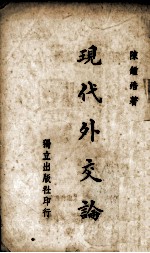 陳鍾浩著
現代外交論
獨立出版社印行